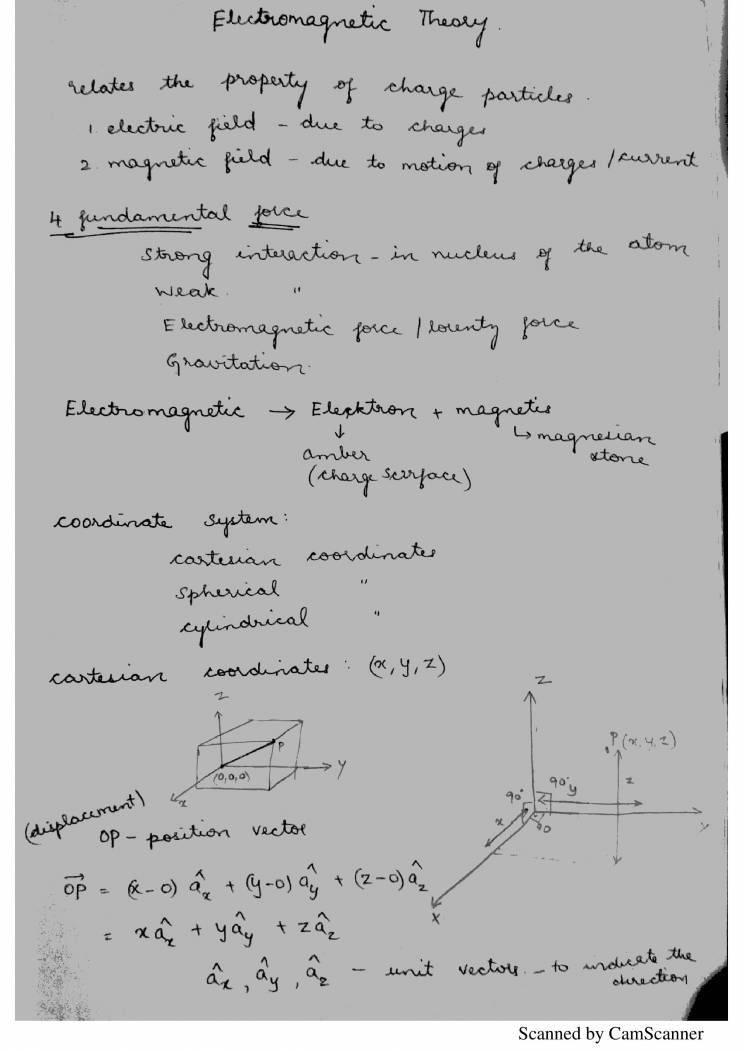 Electromagnetic Theory.
relates the property of charge particles.
1. electric field - due to charges
2. magnetic field - due to motion of charges / current
4 fundamental force
Strong interaction - in nucleus of the atom
Weak. "
Electromagnetic force / lorentz force
Gravitation.
Electromagnetic → Elecktron + magnetis
↓ ↳ magnesian
amber stone
(charge surface)
coordinate system:
cartesian coordinates
spherical "
cylindrical "
cartesian coordinates: (x, y, z)
z
P
y
(0,0,0)
x
Z
P(x, y, z)
90° 90° y z
x 90 y
X
(displacement)
OP - position vector
OP⃗ = (x-0) âx + (y-0) ây + (z-0) âz
= xâx + yây + zâz
âx, ây, âz - unit vectors - to indicate the
direction
Scanned by CamScanner